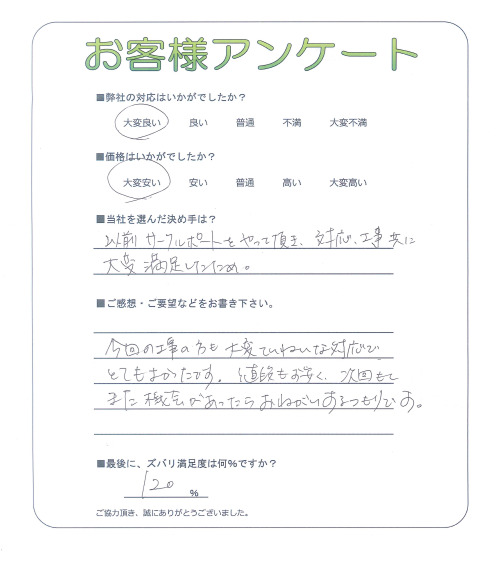 お客様アンケート
■弊社の対応はいかがでしたか?
大変良い 良い 普通 不満 大変不満
■価格はいかがでしたか?
大変安い 安い 普通 高い 大変高い
■当社を選んだ決め手は?
以前 サークルポートをやって頂き、対応、工事共に
大変満足したため。
■ご感想・ご要望などをお書き下さい。
今回の工事の方も大変ていねいな対応で
とてもよかったです。値段もお安く、次回もし
また機会があったらおねがいするつもりです。
■最後に、ズバリ満足度は何%ですか?
120 %
ご協力頂き、誠にありがとうございました。